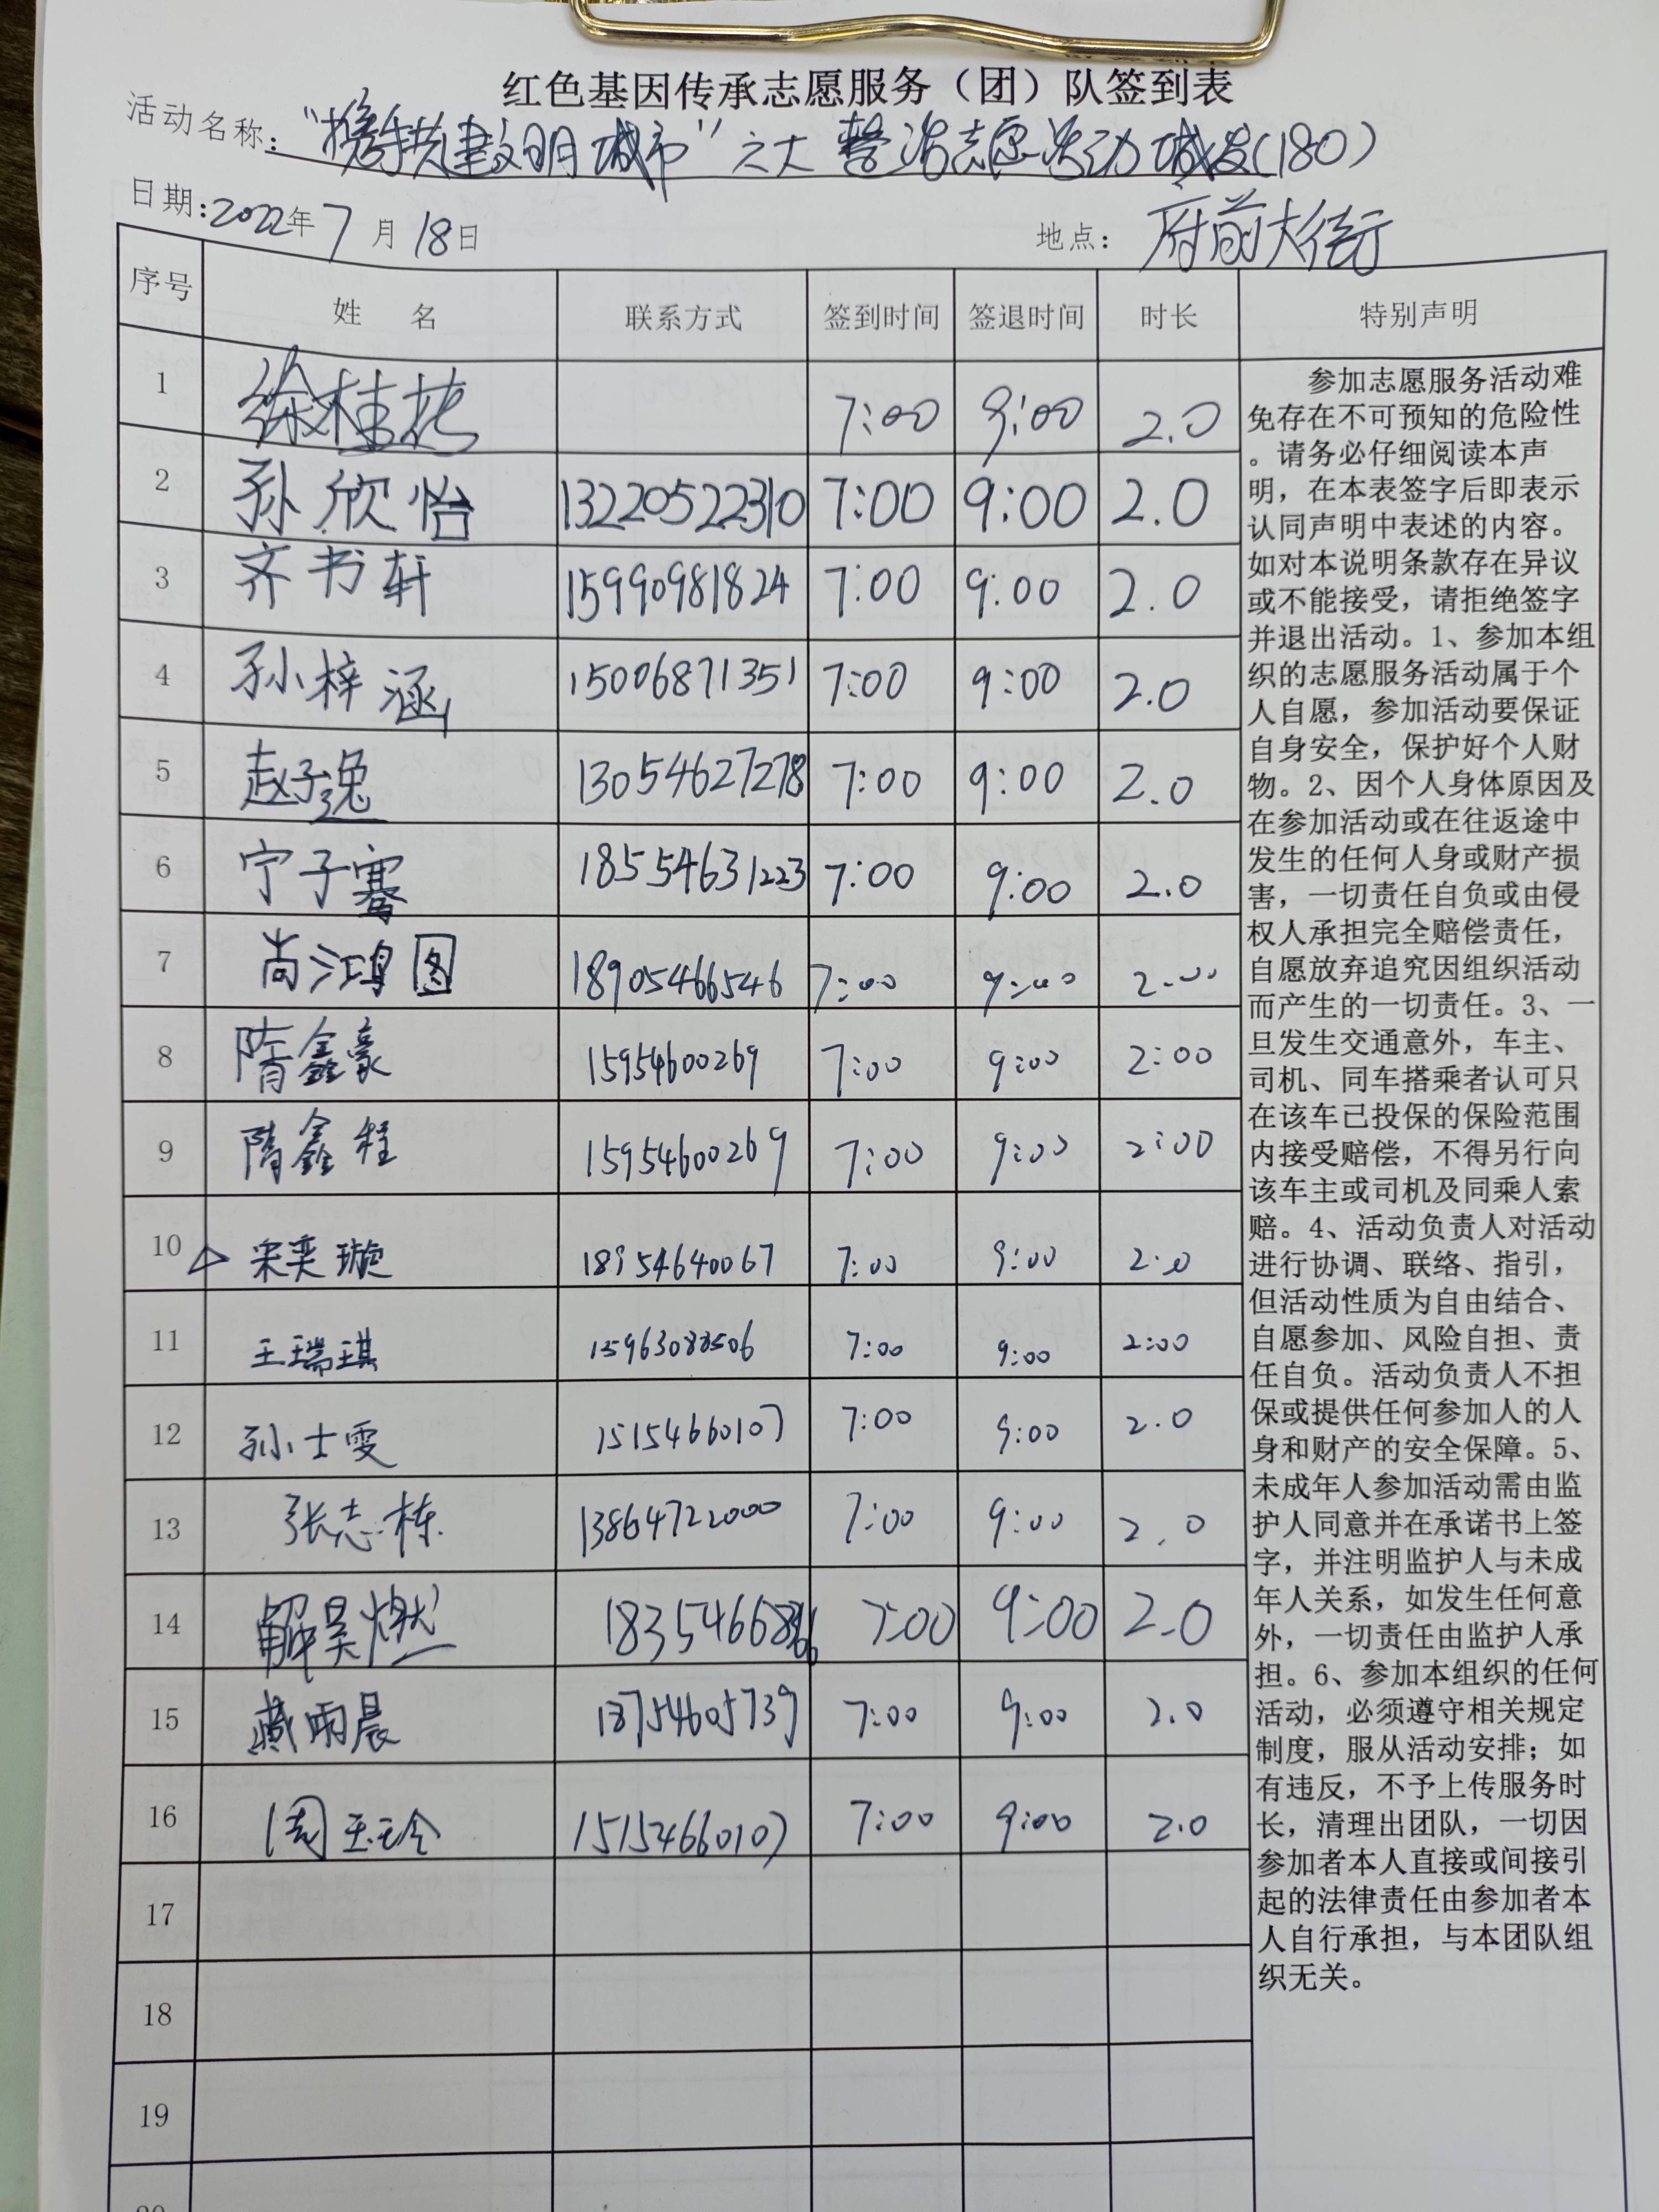 红色基因传承志愿服务（团）队签到表
活动名称："携手共建文明城市"之大整治志愿活动城发(180)
日期:2022年7月18日 地点：府前大街
序号 姓 名 联系方式 签到时间 签退时间 时长 特别声明
1 徐桂花 7:00 9:00 2.0
2 孙欣怡 13220522310 7:00 9:00 2.0
3 齐书轩 15990981824 7:00 9:00 2.0
4 孙梓涵 15006871351 7:00 9:00 2.0
5 赵子逸 13054627278 7:00 9:00 2.0
6 宁子骞 18554631223 7:00 9:00 2.0
7 尚鸿图 18905466546 7:00 9:00 2.00
8 隋鑫豪 15954600269 7:00 9:00 2:00
9 隋鑫程 15954600269 7:00 9:00 2:00
10 宋奕璇 18954640067 7:00 9:00 2.0
11 王瑞琪 15963083506 7:00 9:00 2:00
12 孙士雯 15154660107 7:00 9:00 2.0
13 张志栋 13864722000 7:00 9:00 2.0
14 解昊燃 7:00 9:00 2.0
15 臧雨晨 18754605739 7:00 9:00 2.0
16 周玉玲 15154660107 7:00 9:00 2.0
17
18
19
20
参加志愿服务活动难
免存在不可预知的危险性
。请务必仔细阅读本声
明，在本表签字后即表示
认同声明中表述的内容。
如对本说明条款存在异议
或不能接受，请拒绝签字
并退出活动。1、参加本组
织的志愿服务活动属于个
人自愿，参加活动要保证
自身安全，保护好个人财
物。2、因个人身体原因及
在参加活动或在往返途中
发生的任何人身或财产损
害，一切责任自负或由侵
权人承担完全赔偿责任，
自愿放弃追究因组织活动
而产生的一切责任。3、一
旦发生交通意外，车主、
司机、同车搭乘者认可只
在该车已投保的保险范围
内接受赔偿，不得另行向
该车主或司机及同乘人索
赔。4、活动负责人对活动
进行协调、联络、指引，
但活动性质为自由结合、
自愿参加、风险自担、责
任自负。活动负责人不担
保或提供任何参加人的人
身和财产的安全保障。5、
未成年人参加活动需由监
护人同意并在承诺书上签
字，并注明监护人与未成
年人关系，如发生任何意
外，一切责任由监护人承
担。6、参加本组织的任何
活动，必须遵守相关规定
制度，服从活动安排；如
有违反，不予上传服务时
长，清理出团队，一切因
参加者本人直接或间接引
起的法律责任由参加者本
人自行承担，与本团队组
织无关。